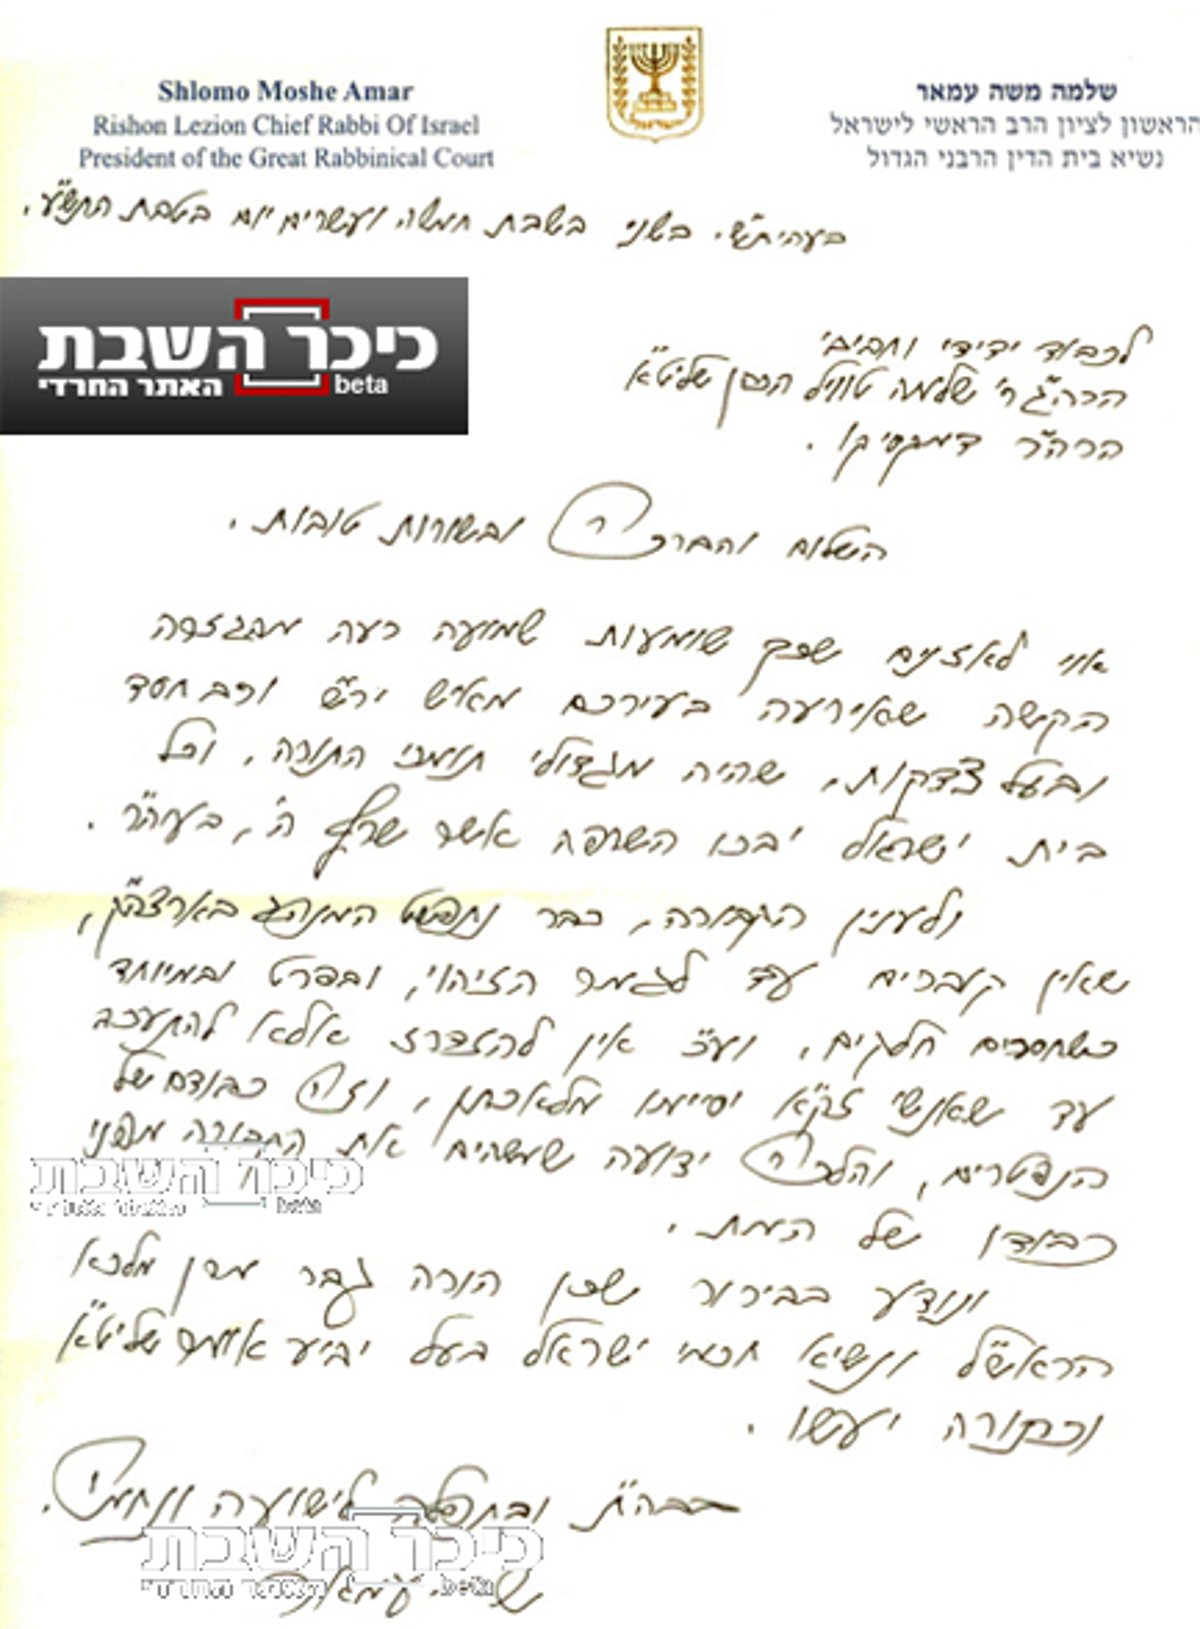 Shlomo Moshe Amar
Rishon Lezion Chief Rabbi Of Israel
President of the Great Rabbinical Court
שלמה משה עמאר
הראשון לציון הרב הראשי לישראל
נשיא בית הדין הרבני הגדול
בעהית"ש. בשני בשבת חמשה ועשרים יום בטבת התש"ע.
כיכר השבת
האתר החרדי beta
לכבוד ידידי וחביבי
הרה"ג ר' שלמה טוויל הכהן שליט"א
הרה"ר דמקסיקו.
השלום והברכה ובשורות טובות.
אוי לאזנים שכך שומעות שמועה רעה מהגזרה
הקשה שאירעה בעירכם מאיש יר"ש ורב חסד
ובעל צדקות, שהיה מגדולי תומכי התורה, וכל
בית ישראל יבכו השרפה אשר שרף ה', בעוה"ר.
ולענין הקבורה, כבר נתפשט המנהג בארצה"ק,
שאין קוברים עד לגמר הזיהוי, ובפרט ובמיוחד
כשחסרים חלקים, וע"כ אין להזדרז אלא להתעכב
עד שאנשי זק"א יסיימו מלאכתן, וזה כבודם של
הנפטרים, והלכה ידועה שמשהים את הקבורה מפני
כבודו של המת.
ונודע בבירור שכן הורה גבר מרן מלכא
הראש"ל ונשיא חכמי ישראל בעל יביע אומר שליט"א
וכתורה יעשו.
בבה"ת ובתפלה לישועה ונחמה.
כיכר השבת
האתר החרדי beta
כיכר השבת
האתר החרדי beta